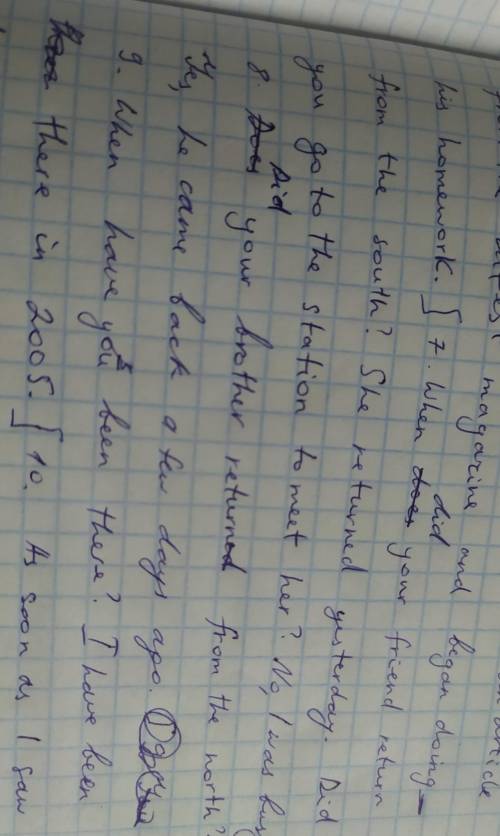 magazine and began doing
his homework. 7. When did your friend return
from the south? She returned yesterday. Did
you go to the station to meet her? No, I was busy
8. Did your brother returned from the north?
Yes, he came back a few days ago.
9. When have you been there? I have been
there in 2005. 10. As soon as I saw